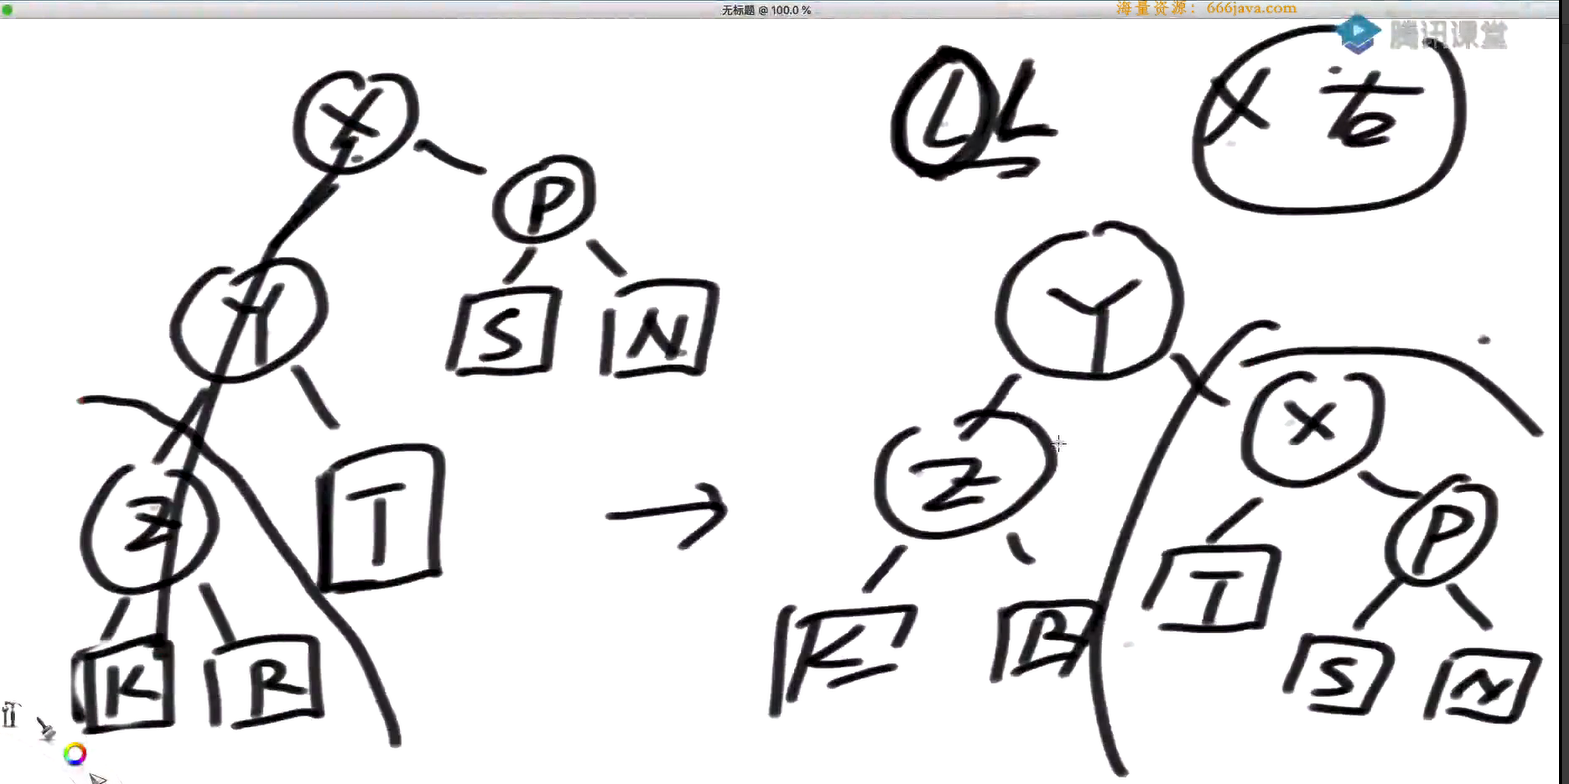 无标题 @ 100.0 %
海量资源：666java.com
腾讯课堂
X
P
Y
S
N
Z
T
K
R
LL
X 右
Y
X
Z
P
T
K
R
S
N